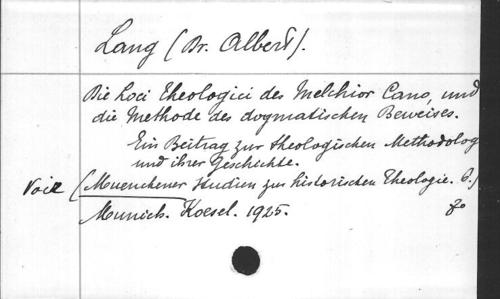 Lang (Dr. Albert).
Die Loci Theologici des Melchior Cano, und
die Methode des dogmatischen Beweises.
Ein Beitrag zur theologischen Methodolog
und ihrer Geschichte.
Voir (Muenchener Studien zur historischen Theologie. 6.)
Munich. Koesel. 1925.